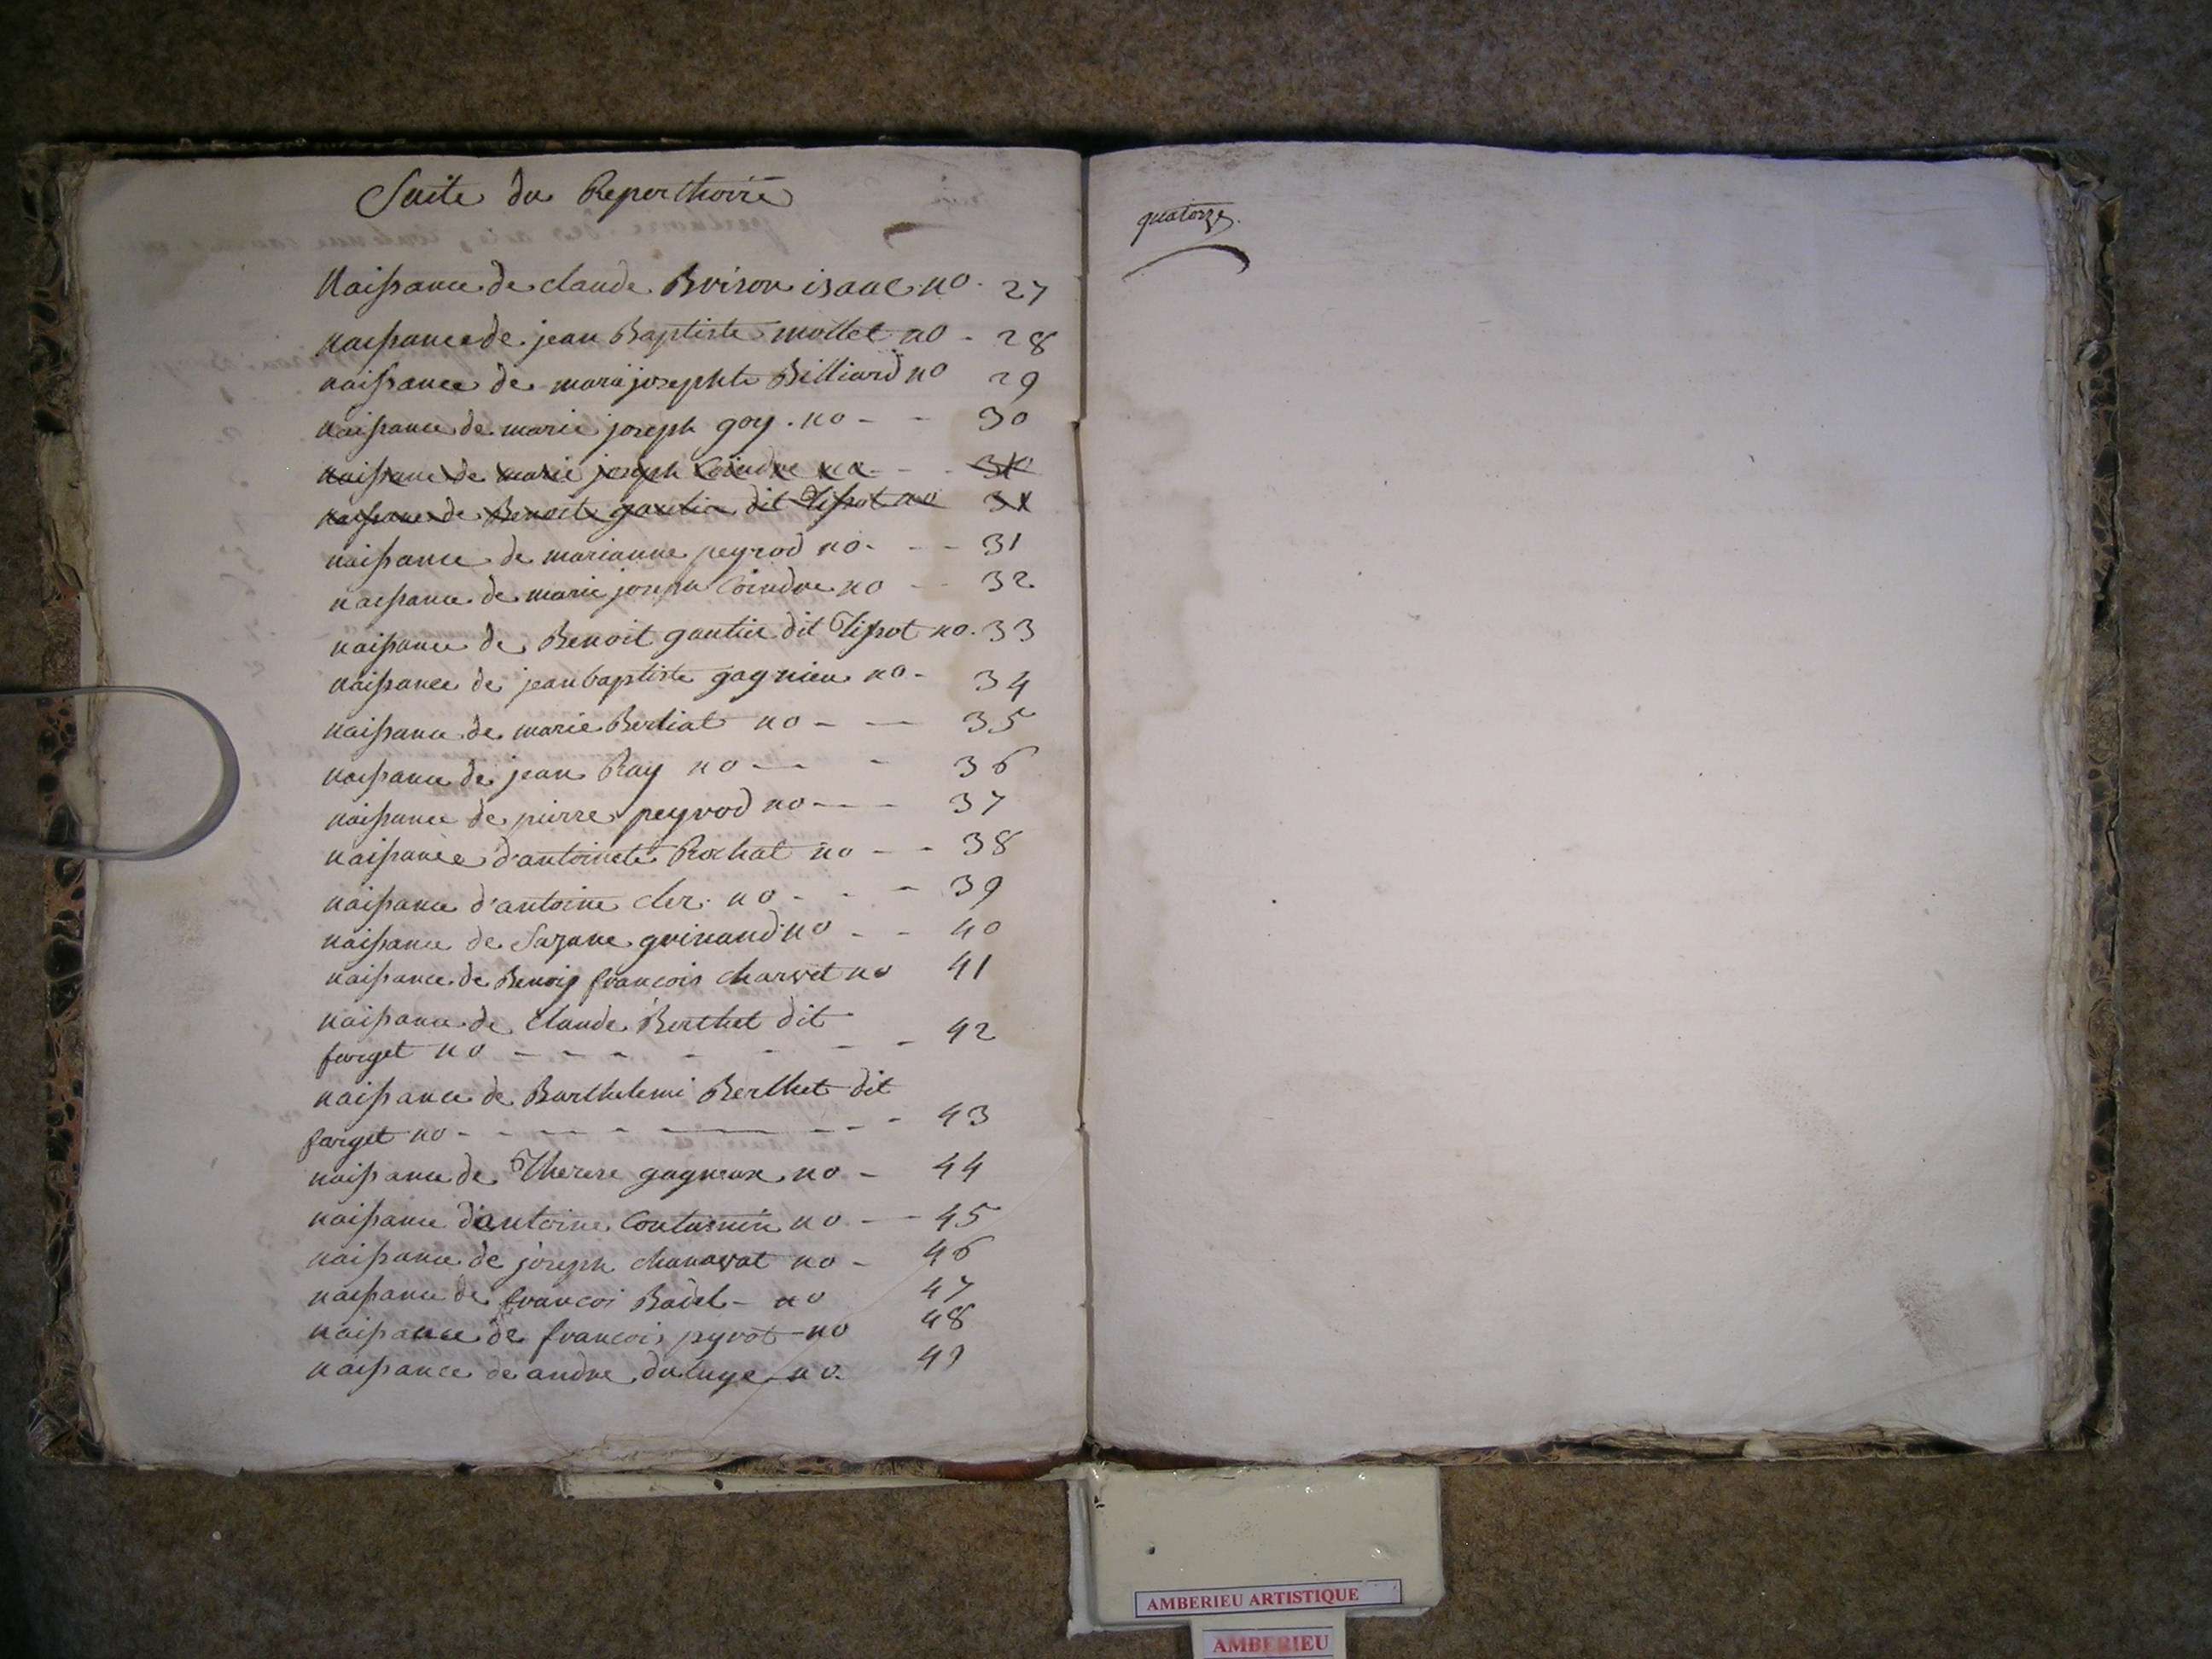 Suite du Reperthoire
Naissance de claude Brison isaac no. 27
naissance de jean Baptiste mollet no - 28
naissance de marie josephte Billiard no 29
naissance de marie joseph goy . no - - 30
naissance de marie joseph Coindre no - -
naissance de Benoit gautier dit Tissot no 31
naissance de marianne peyrod no - - - 31
naissance de marie joseph Coindre no - - 32
naissance de Benoit gautier dit Tissot no. 33
naissance de jean baptiste gagnieu no - 34
naissance de marie Berliat no - - 35
naissance de jean Ray no - - 36
naissance de pierre peyrod no - - 37
naissance d'antoinete Rochat no - - 38
naissance d'antoine cler. no - - - 39
naissance de Suzane guinand no - - 40
naissance de Benoip francois charvet no 41
naissance de Claude Berthet dit
farget no - - - - - - - 42
naissance de Barthelemi Berthet dit
farget no - - - - - - - 43
naissance de Therese gagneux no - 44
naissance d'antoine no - - 45
naissance de joseph chanavat no - 46
naissance de francoi Badel - no 47
naissance de francois pyrot - no 48
naissance de andre no. 49
quatorze.
AMBERIEU ARTISTIQUE
AMBERIEU